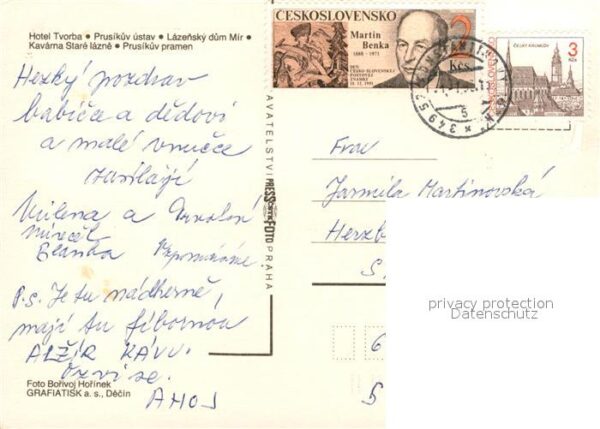 Hotel Tvorba • Prusíkův ústav • Lázeňský dům Mír •
Kavárna Staré lázně • Prusíkův pramen
ČESKOSLOVENSKO
Martin
Benka
1888 - 1971
DEN
ČESKO-SLOVENSKEJ
POŠTOVEJ
ZNÁMKY
18. 12. 1991
2
Kčs
ČESKÝ KRUMLOV
3
Kčs
ČESKOSLOVENSKO
3495
5
Hezký pozdrav
babičce a dědovi
a malé vnučce
zasílají
Milena a
Blanka Vzpomínáme
P.S. Je tu nádherně,
mají tu fíbornou
ALŽÍR KÁVU.
Ozvi se.
AHOJ
Foto Bořivoj Hořínek
GRAFIATISK a. s., Děčín
PRESSFOTO
PRAHA
Jarmila Martinovská
privacy protection
Datenschutz
6
5